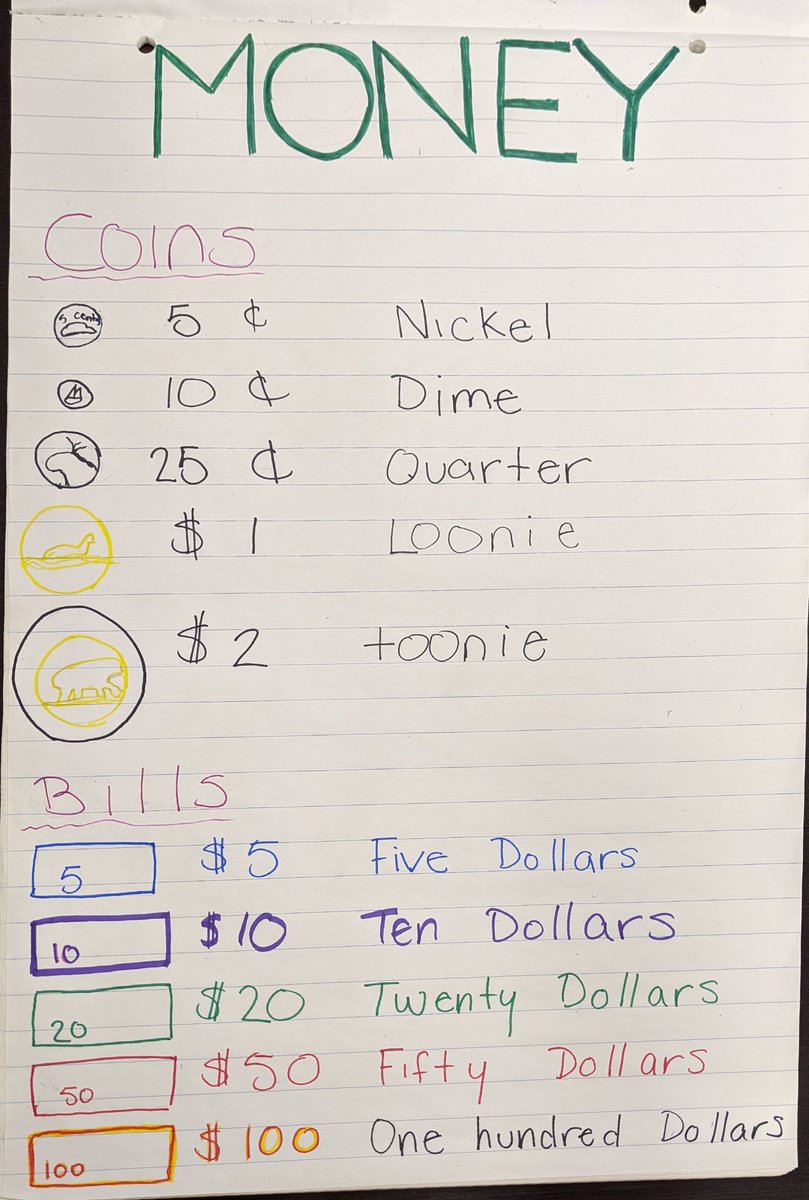 MONEY
Coins
5 cents 5 ¢ Nickel
10 ¢ Dime
25 ¢ Quarter
$ 1 Loonie
$ 2 toonie
Bills
5 $5 Five Dollars
10 $10 Ten Dollars
20 $20 Twenty Dollars
50 $50 Fifty Dollars
100 $100 One hundred Dollars